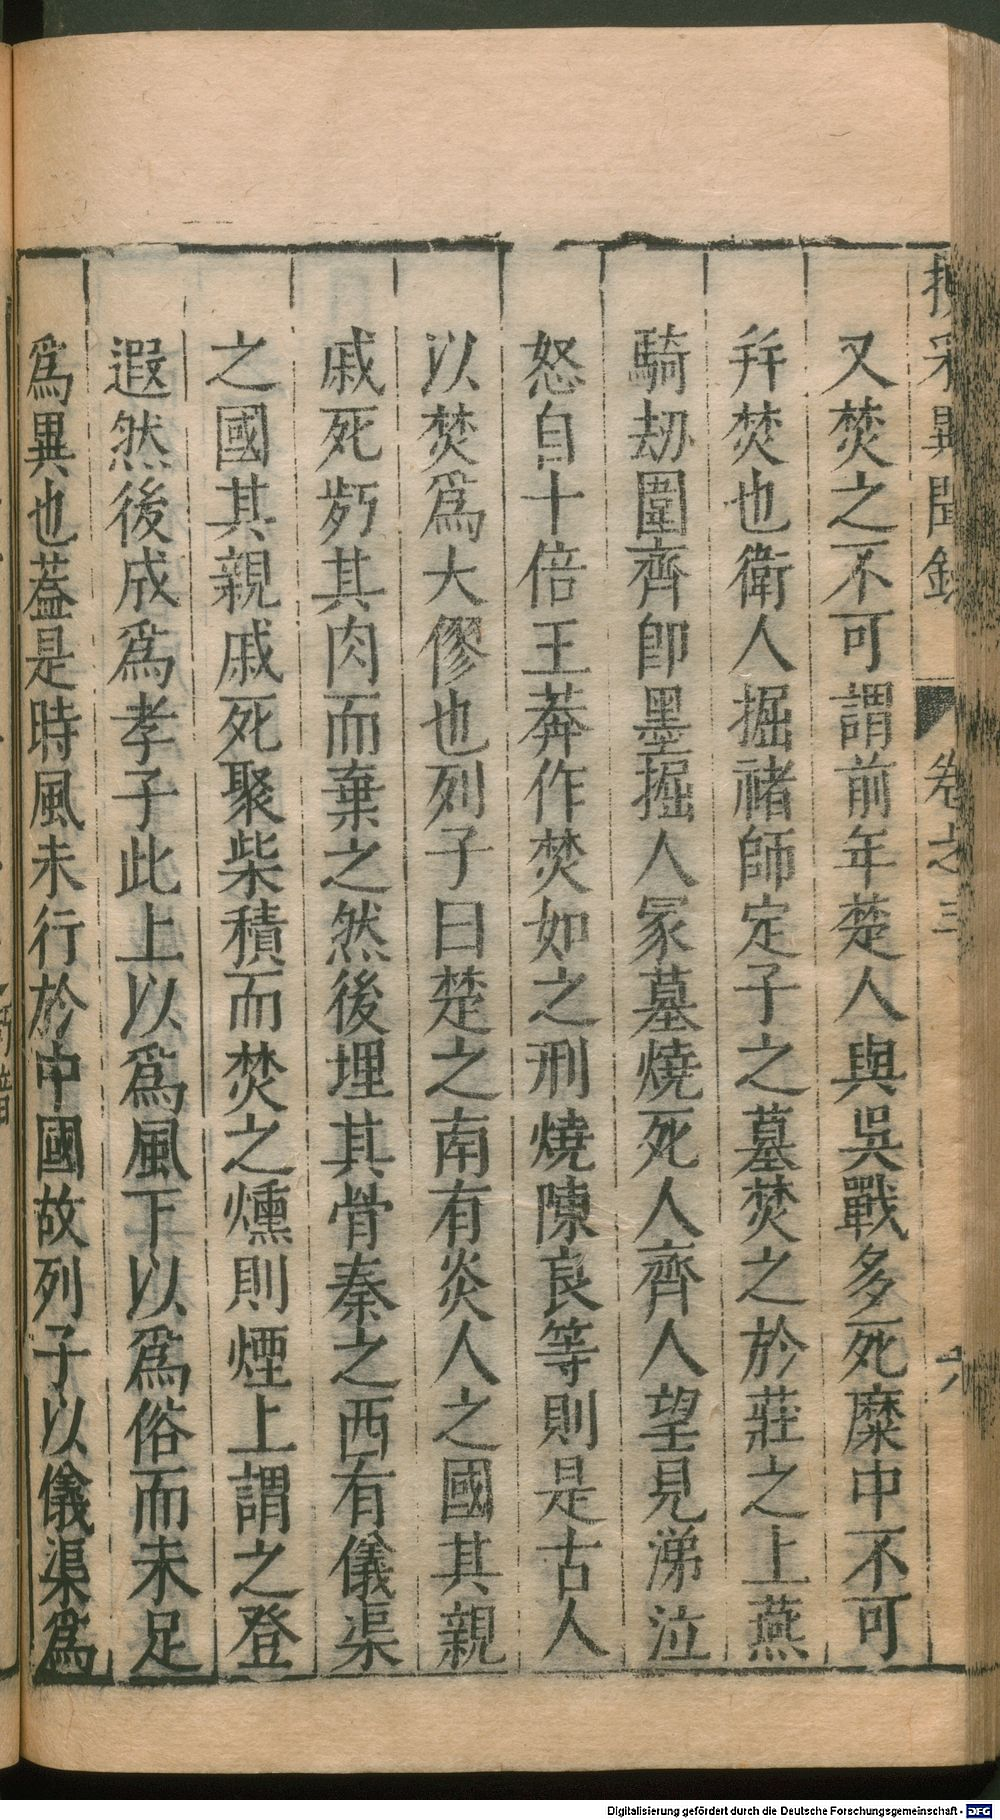 采異聞錄 卷之三 六
又焚之不可謂前年楚人與吳戰多死麋中不可
幷焚也衛人掘禇師定子之墓焚之於莊之上燕
騎劫圍齊卽墨掘人冢墓燒死人齊人望見涕泣
怒自十倍王莽作焚如之刑燒陳良等則是古人
以焚爲大僇也列子曰楚之南有炎人之國其親
戚死㱙其肉而棄之然後埋其骨秦之西有儀渠
之國其親戚死聚柴積而焚之燻則煙上謂之登
遐然後成爲孝子此上以爲風下以爲俗而未足
爲異也葢是時風未行於中國故列子以儀渠爲
Digitalisierung gefördert durch die Deutsche Forschungsgemeinschaft - DFG